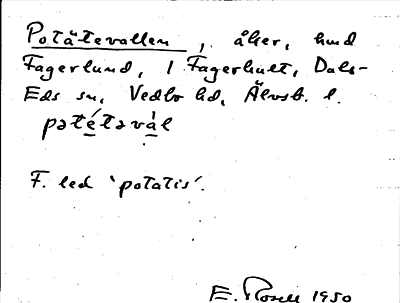 Potätevallen, åker, hmd
Fagerlund, 1 Fagerhult, Dals-
Eds sn, Vedbo hd, Älvsb. l.
pətétəvàl
F. led 'potatis'.
E. Rosell 1950